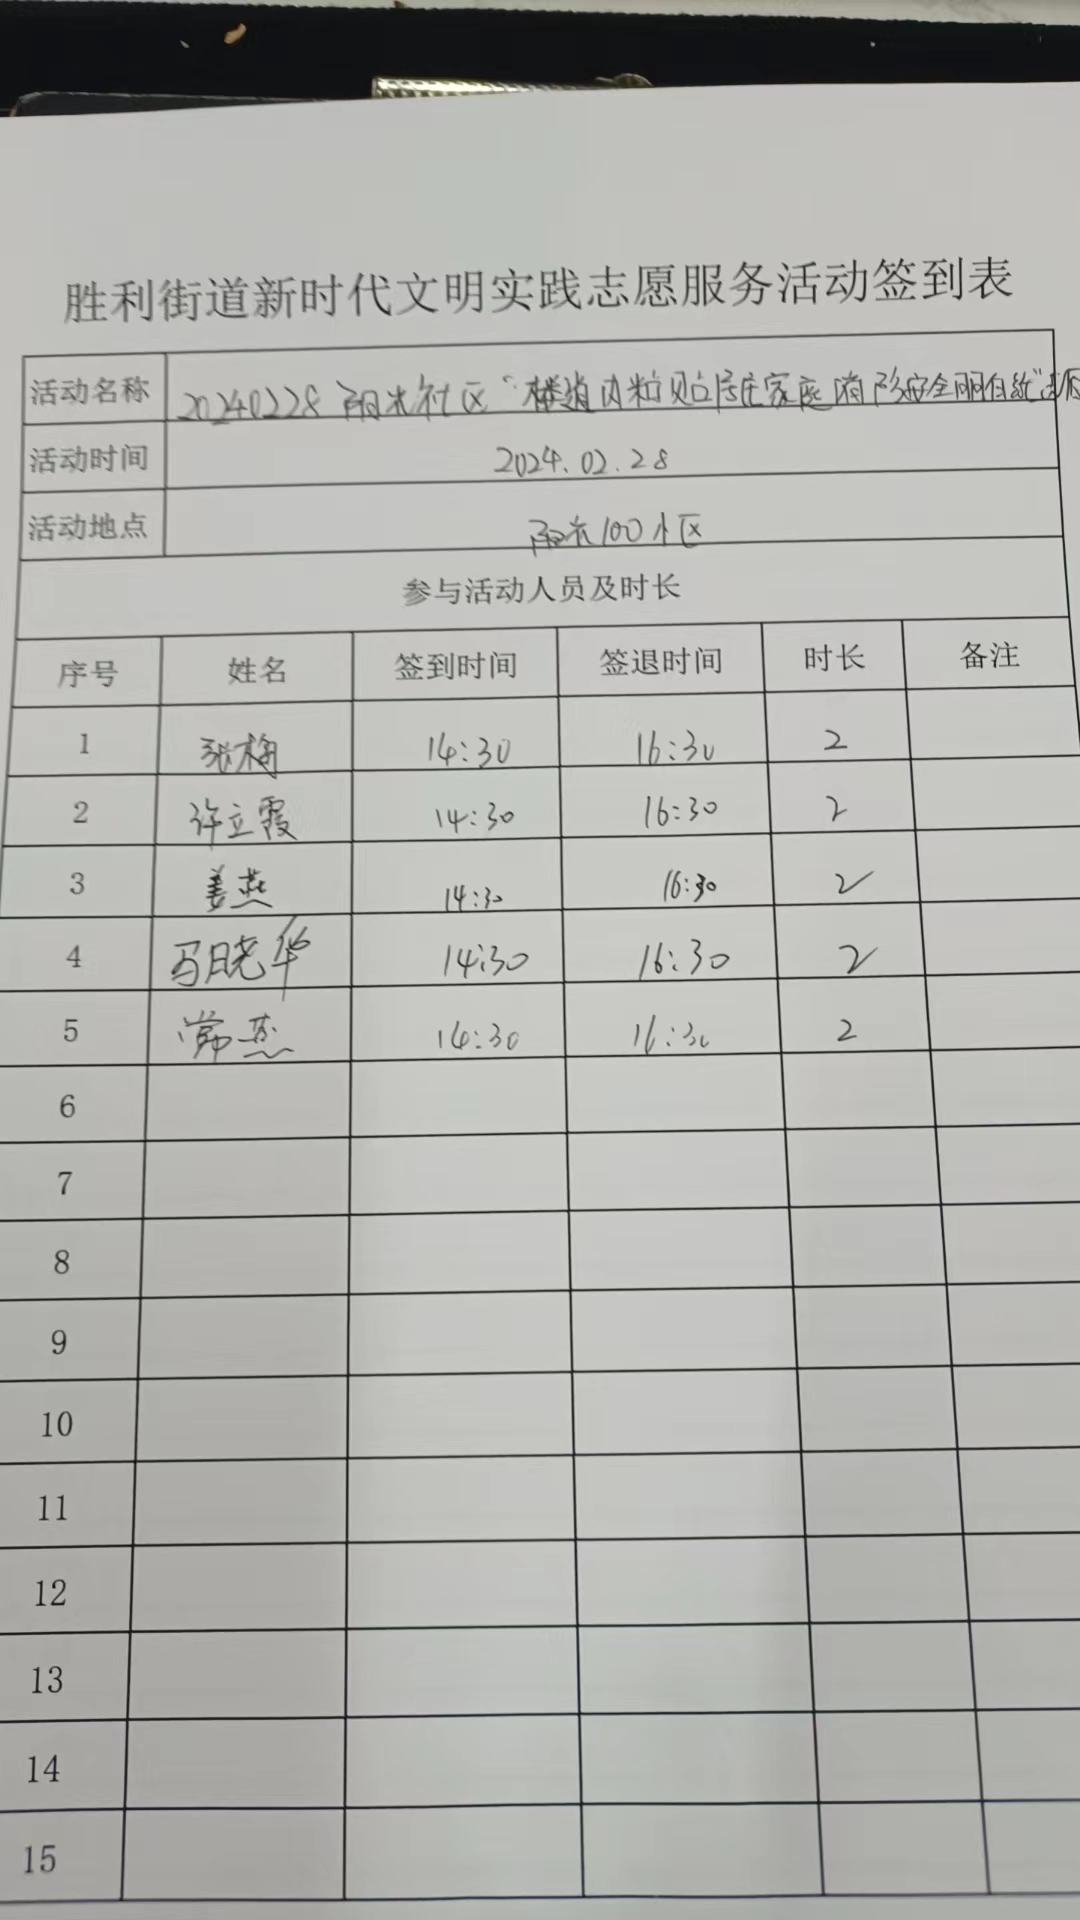 胜利街道新时代文明实践志愿服务活动签到表
活动名称 20240228 阳光社区“楼道内粘贴居住家庭消防安全明白纸”志愿
活动时间 2024.02.28
活动地点 阳光100小区
参与活动人员及时长
序号 姓名 签到时间 签退时间 时长 备注
1 张梅 14:30 16:30 2
2 许立霞 14:30 16:30 2
3 姜燕 14:30 16:30 2
4 马晓华 14:30 16:30 2
5 常燕 14:30 16:30 2
6
7
8
9
10
11
12
13
14
15